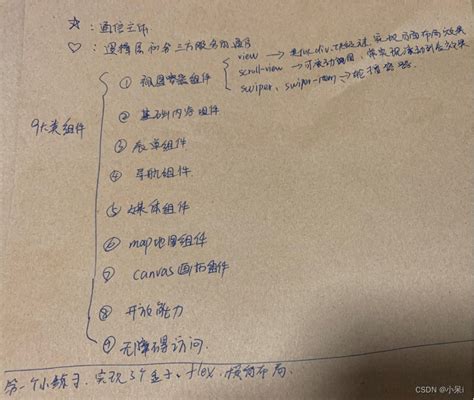 ☆：通信主体
♡：逻辑层和各三方服务的通信
9大类组件
① 视图容器组件
view → 类似div,块级元素,实现页面布局效果
scroll-view → 可滚动视图,常实现滚动列表效果
swiper, swiper-item → 轮播容器
② 基础内容组件
③ 表单组件
④ 导航组件
⑤ 媒体组件
⑥ map地图组件
⑦ canvas画布组件
⑧ 开放能力
⑨ 无障碍访问
第一个小练习,实现3个盒子,flex,横向布局.
CSDN @小呆i